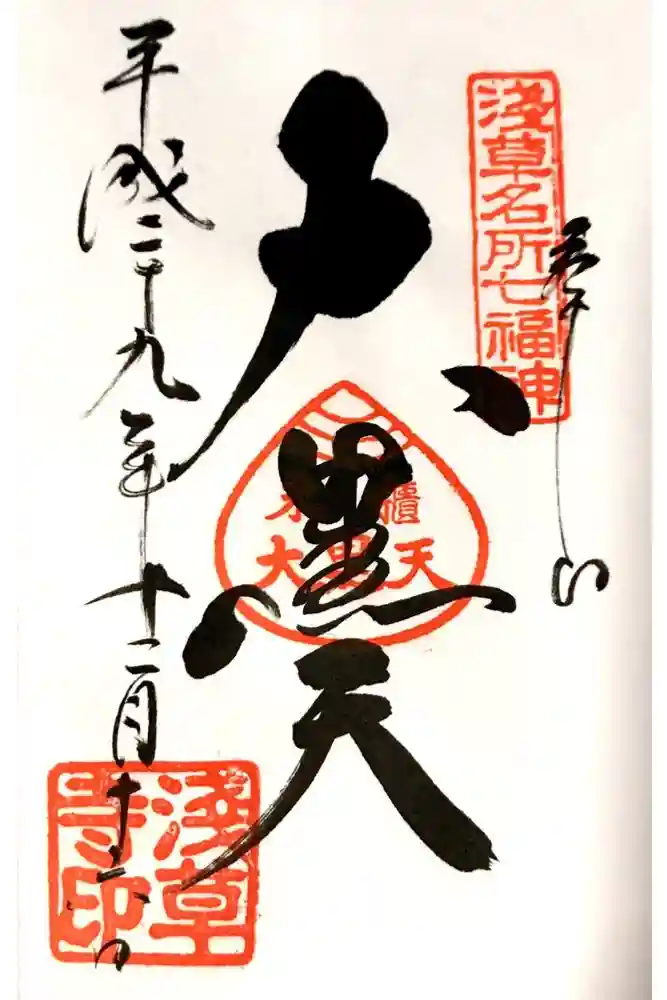 奉拝
淺草名所七福神
大黒天
米櫃
大黒天
平成二十九年十二月十 日
淺草寺印